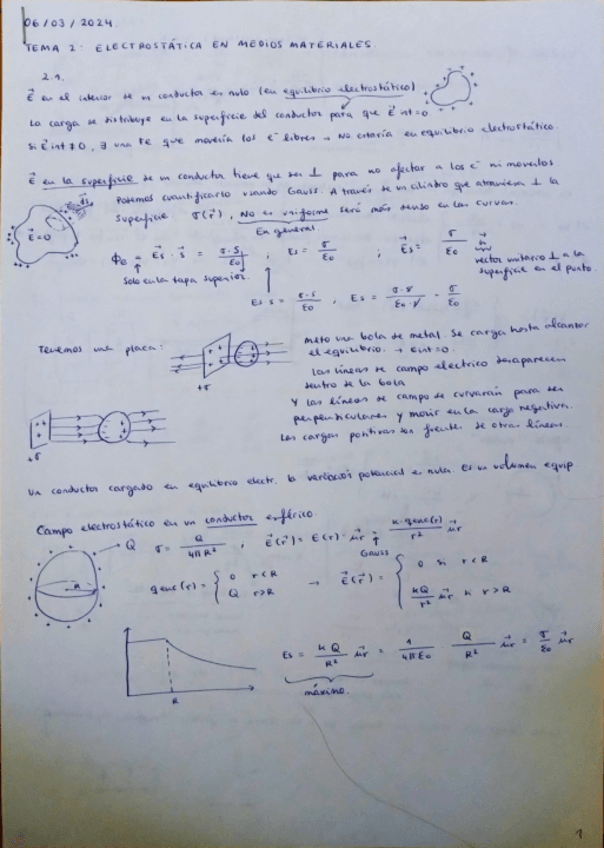 06/03/2024.
TEMA 2: ELECTROSTÁTICA EN MEDIOS MATERIALES.
2.1.
E⃗ en el interior de un conductor es nulo (en equilibrio electrostático)
La carga se distribuye en la superficie del conductor para que E⃗ int=0
Si E⃗ int≠0, ∃ una Fe que movería los e⁻ libres → No estaría en equilibrio electrostático.
E⃗ en la superficie de un conductor tiene que ser ⊥ para no afectar a los e⁻ ni moverlos
Podemos cuantificarlo usando Gauss. A través de un cilindro que atraviesa ⊥ la
superficie σ(r⃗), No es uniforme será más denso en las curvas.
En general.
E⃗=0
Φ₀ = E⃗s · s⃗ = σ·s/ε₀ ; Es = σ/ε₀ ; E⃗s = σ/ε₀
vector unitario ⊥ a la
superficie en el punto.
Solo en la tapa superior.
Es s = σ·s/ε₀ , Es = σ·s/ε₀·s = σ/ε₀
Tenemos una placa:
+σ
meto una bola de metal. Se carga hasta alcanzar
el equilibrio. → Eint=0.
Las líneas de campo electrico desaparecen
dentro de la bola
Y las líneas de campo se curvarán para ser
perpendiculares y morir en la carga negativa.
Las cargas positivas son fuentes de otras líneas.
+σ
Un conductor cargado en equilibrio electr. la variación potencial es nula. Es un volumen equip
Campo electrostático en un conductor esférico.
Q
R
σ = Q/4πR² ; E⃗(r⃗) = E(r)·u⃗r = k·qenc(r)/r² u⃗r
Gauss
qenc(r) = { 0 r<R
Q r>R
→ E⃗(r⃗) = { 0 si r<R
kQ/r² u⃗r si r>R
R
Es = kQ/R² u⃗r = 1/4πε₀ · Q/R² u⃗r = σ/ε₀ u⃗r
máximo.
1